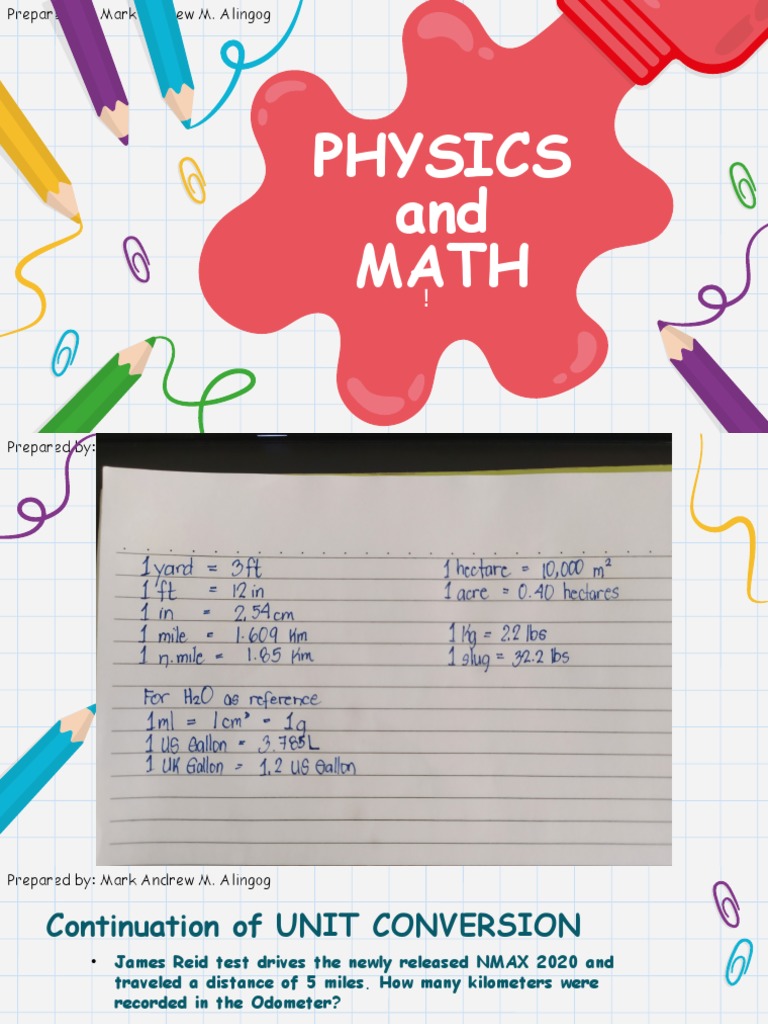 Prepar Mark ew M. Alingog
PHYSICS
and
MATH
!
Prepared by:
1 yard = 3 ft
1 ft = 12 in
1 in = 2.54 cm
1 mile = 1.609 Km
1 n.mile = 1.85 Km
1 hectare = 10,000 m²
1 acre = 0.40 hectares
1 Kg = 2.2 lbs
1 slug = 32.2 lbs
For H₂O as reference
1 ml = 1 cm³ = 1g
1 US Gallon = 3.785L
1 UK Gallon = 1.2 US Gallon
Prepared by: Mark Andrew M. Alingog
Continuation of UNIT CONVERSION
• James Reid test drives the newly released NMAX 2020 and
traveled a distance of 5 miles. How many kilometers were
recorded in the Odometer?